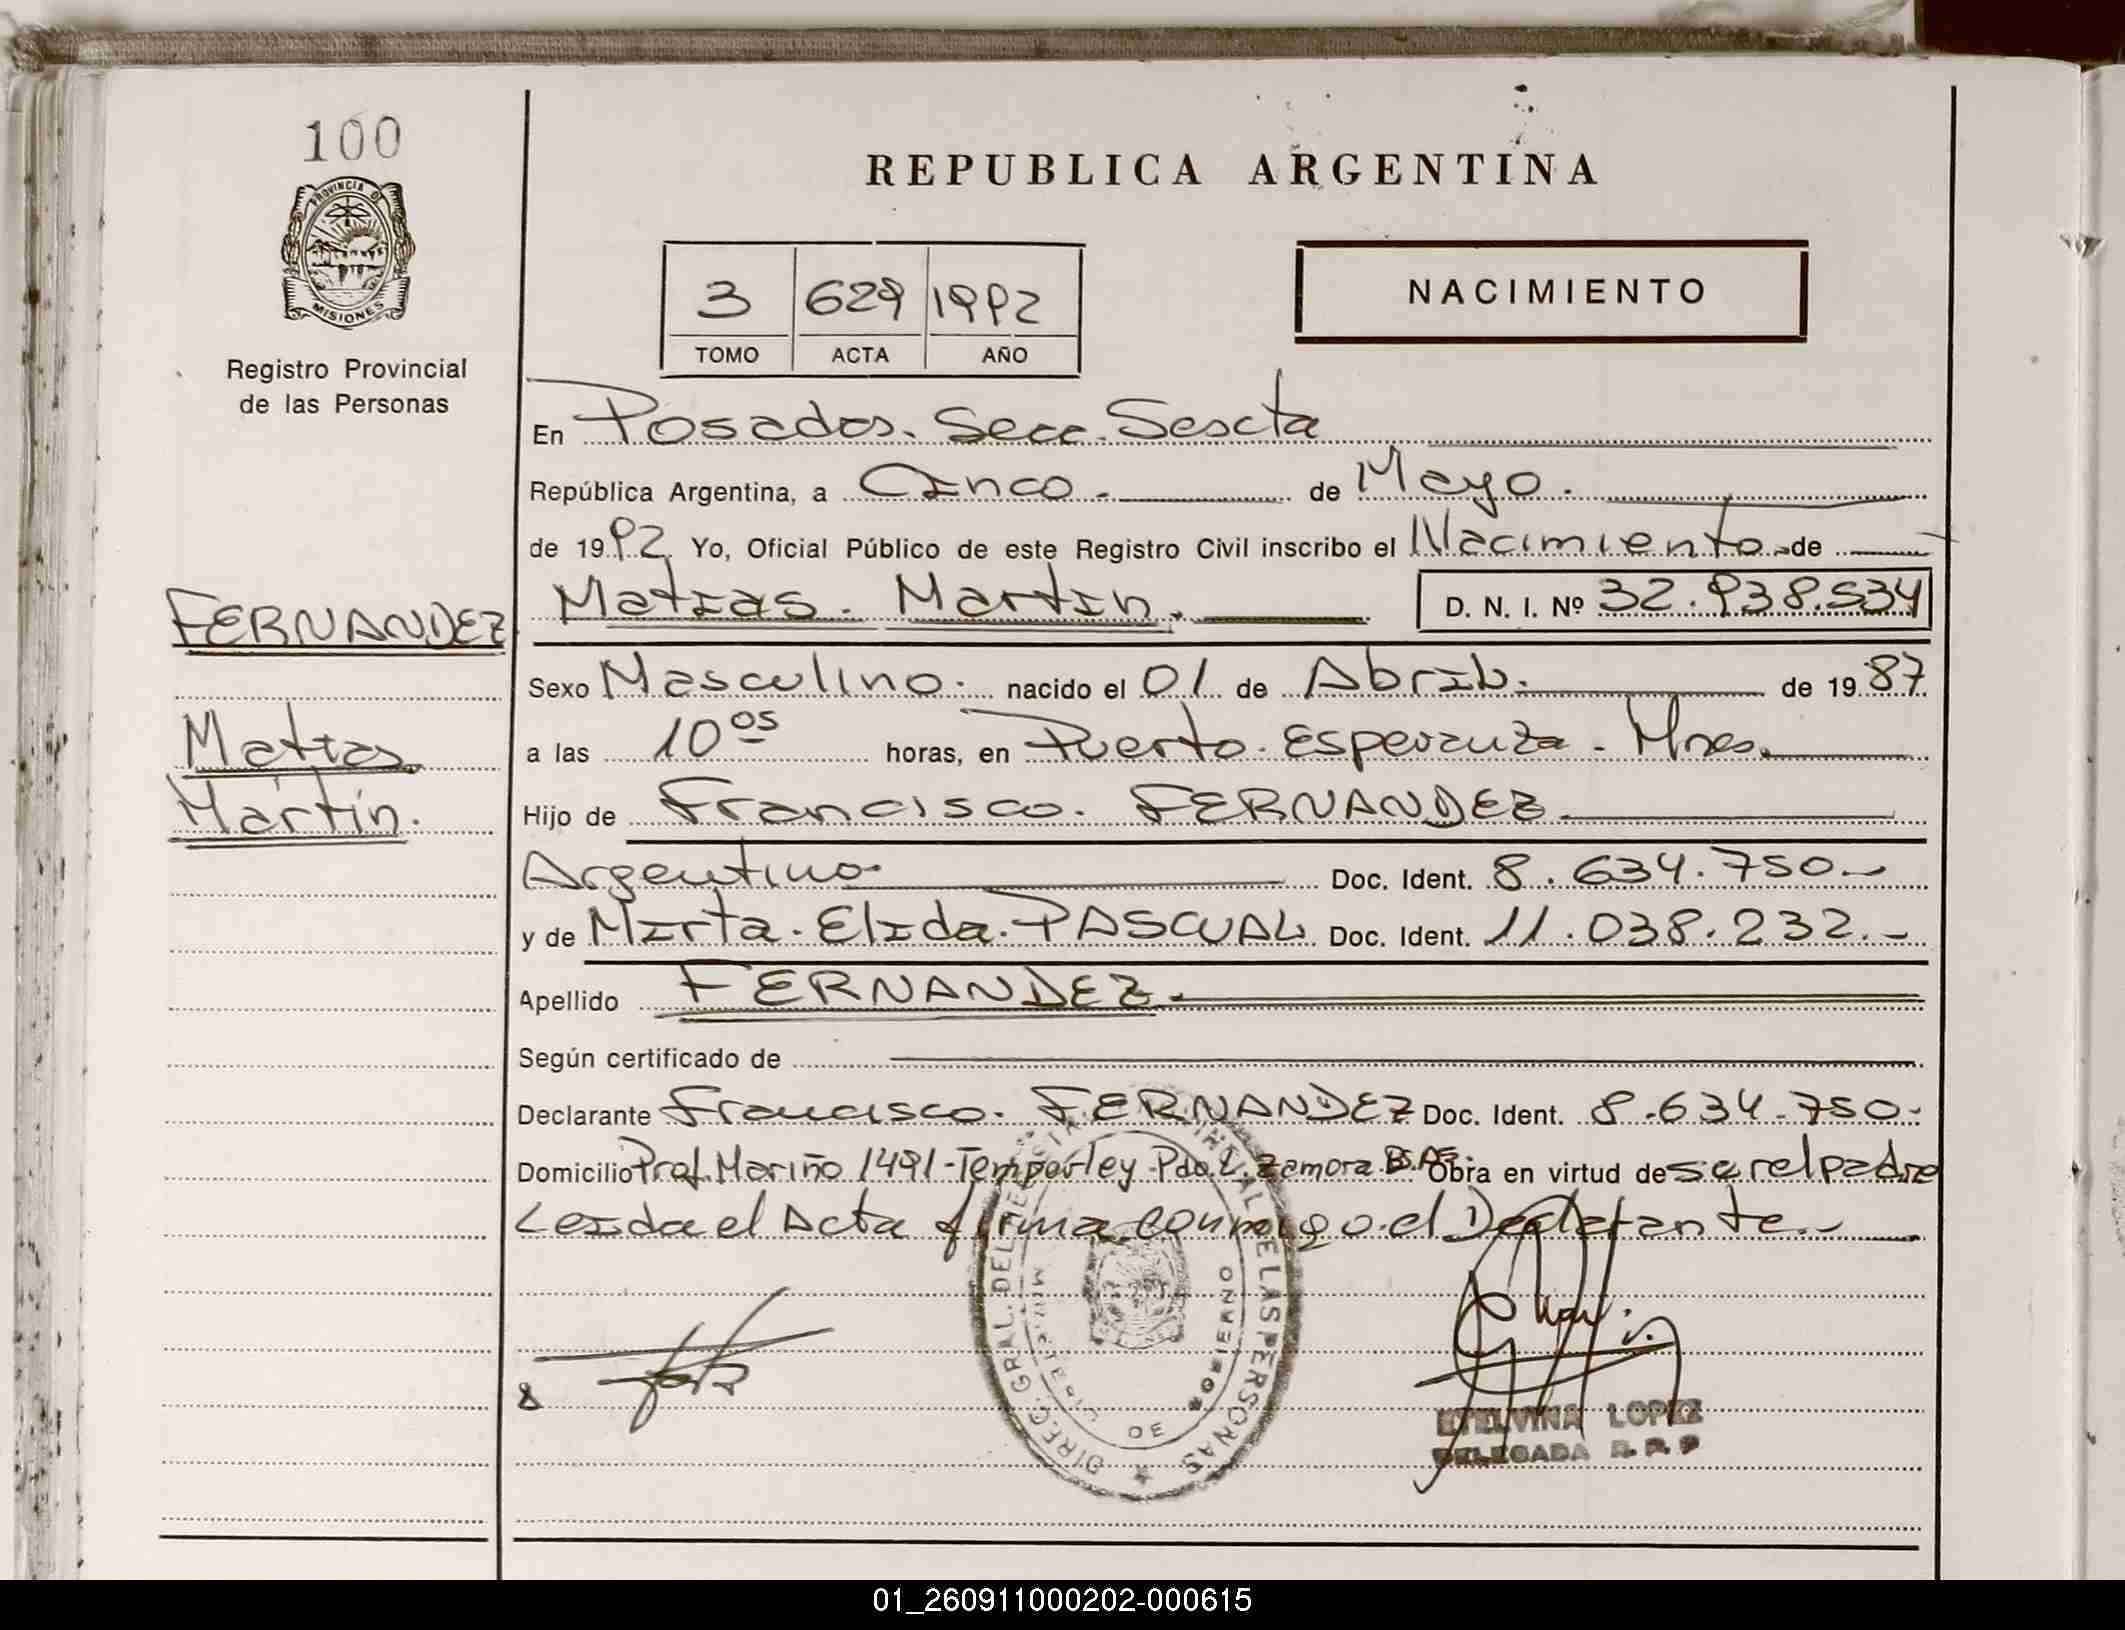 100
PROVINCIA DE
MISIONES
Registro Provincial
de las Personas
REPUBLICA ARGENTINA
3 629 1992
TOMO ACTA AÑO
NACIMIENTO
En Posadas. Secc. Sescta
República Argentina, a Cinco. de Mayo.
de 1992. Yo, Oficial Público de este Registro Civil inscribo el Nacimiento de
FERNANDEZ
Matias. Martin. D. N. I. Nº 32.938.534
Sexo Masculino. nacido el 01 de Abril. de 1987
Matias
Martin.
a las 10 os horas, en Puerto. Esperanza. Mnes.
Hijo de Francisco. FERNANDEZ
Argentino Doc. Ident. 8.634.750.-
y de Mirta. Elida. PASCUAL Doc. Ident. 11.038.232.-
Apellido FERNANDEZ.
Según certificado de
Declarante Francisco. FERNANDEZ Doc. Ident. 8.634.750.-
Domicilio Prof. Mariño 1491-Temperley-Pdo. L. Zamora Bs.As. Obra en virtud de ser el padre
Leida el Acta firma conmigo el Declarante.-
DIREC. GRAL. DEL DE LAS PERSONAS
DE GOBIERNO
ETELVINA LOPEZ
DELEGADA R. P. P
01_260911000202-000615